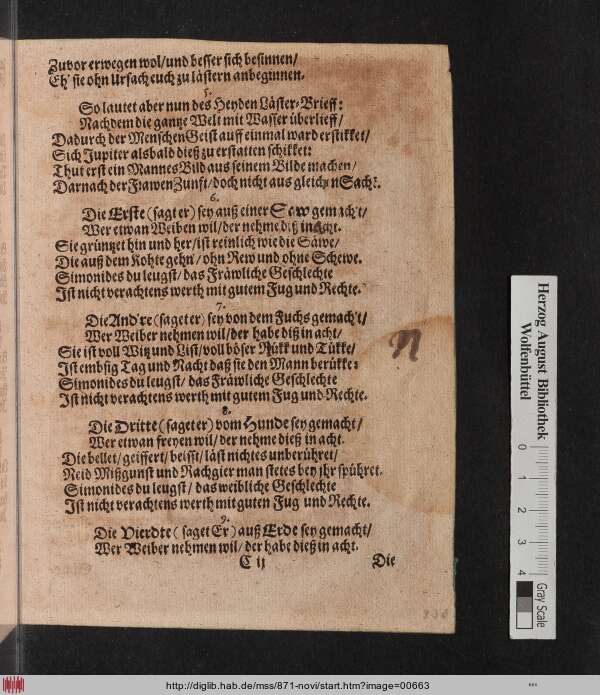 Zuvor erwegen wol/und besser sich besinnen/
Eh' sie ohn Ursach euch zu lästern anbeginnen.
5.
So lautet aber nun des Heyden Läster-Brieff:
Nachdem die gantze Welt mit Wasser überlieff/
Dadurch der Menschen Geist auff einmal ward erstikket/
Sich Jupiter alsbald dieß zu erstatten schikket:
Thut erst ein Mannes Bild aus seinem Bilde machen/
Darnach der Frawen Zunft/doch nicht aus gleichen
6.
Die Erste (sagt er) sey auß einer Saw gemach't/
Wer etwan Weiben wil/der nehme diß in acht.
Sie grüntzet hin und her/ist reinlich wie die Säwe/
Die auß dem Kohte gehn/ohn Rew und ohne Schewe.
Simonides du leugst/das Fräwliche Geschlechte
Ist nicht verachtens werth mit gutem Fug und Rechte.
7.
Die And're (saget er) sey von dem Fuchs gemach't/
Wer Weiber nehmen wil/der habe diß in acht/
Sie ist voll Witz und List/voll böser Nükk und Tükke/
Ist embsig Tag und Nacht daß sie den Mann berükke:
Simonides du leugst/das Fräwliche Geschlechte
Ist nicht verachtens werth mit gutem Fug und Rechte.
8.
Die Dritte (saget er) vom Hunde sey gemacht/
Wer etwan freyen wil/der nehme dieß in acht.
Die bellet/geiffert/beisst/läst nichtes unberühret/
Neid Mißgunst und Rachgier man stetes bey ihr spühret.
Simonides du leugst/das weibliche Geschlechte
Ist nicht verachtens werth mit guten Fug und Rechte.
9.
Die Vierdte (saget Er) auß Erde sey gemacht/
Wer Weiber nehmen wil/der habe dieß in acht.
C ij Die
Herzog August Bibliothek
Wolfenbüttel
0
1
2
3
4
Gray Scale
http://diglib.hab.de/mss/871-novi/start.htm?image=00663